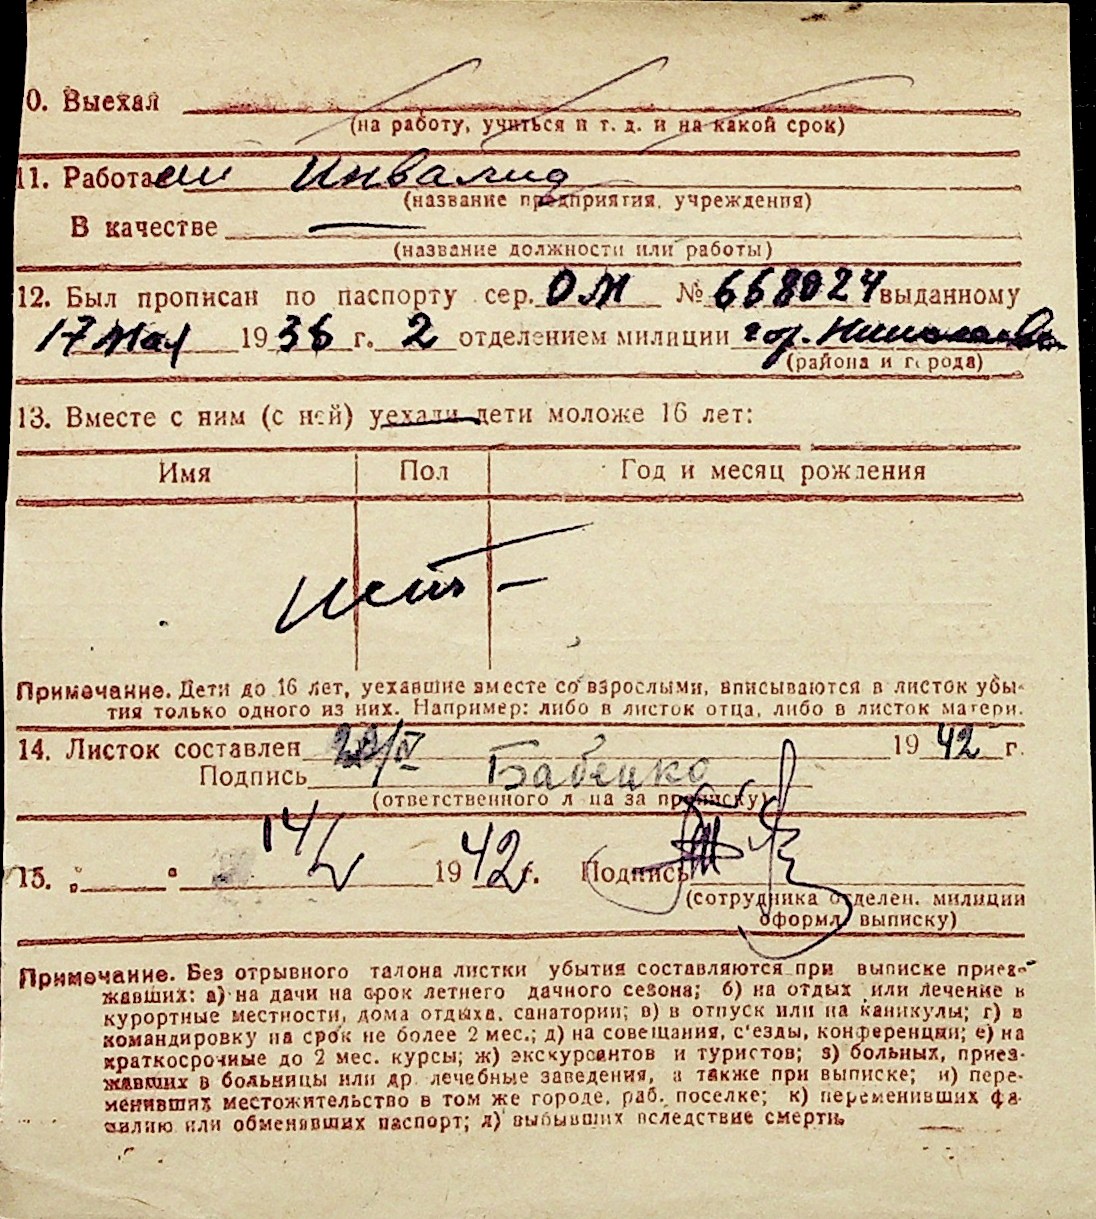 0. Выехал
(на работу, учиться и т. д. и на какой срок)
11. Работал Инвалид
(название предприятия, учреждения)
В качестве —
(название должности или работы)
12. Был прописан по паспорту сер. ОМ № 668024 выданному
17 Мая 1936 г. 2 отделением милиции гор. Николаева
(района и города)
13. Вместе с ним (с ней) уехали дети моложе 16 лет:
Имя Пол Год и месяц рождения
нет —
Примечание. Дети до 16 лет, уехавшие вместе со взрослыми, вписываются в листок убы-
тия только одного из них. Например: либо в листок отца, либо в листок матери.
14. Листок составлен 1942 г.
Подпись Бабенко
(ответственного лица за прописку)
15. „ “ 14/V 1942 г. Подпись
(сотрудника отделен. милиции
оформл. выписку)
Примечание. Без отрывного талона листки убытия составляются при выписке приез-
жавших: а) на дачи на срок летнего дачного сезона; б) на отдых или лечение в
курортные местности, дома отдыха, санатории; в) в отпуск или на каникулы; г) в
командировку на срок не более 2 мес.; д) на совещания, с'езды, конференции; е) на
краткосрочные до 2 мес. курсы; ж) экскурсантов и туристов; з) больных, приез-
жавших в больницы или др. лечебные заведения, а также при выписке; и) пере-
менивших местожительство в том же городе, раб. поселке; к) переменивших фа-
милию или обменявших паспорт; л) выбывших вследствие смерти.